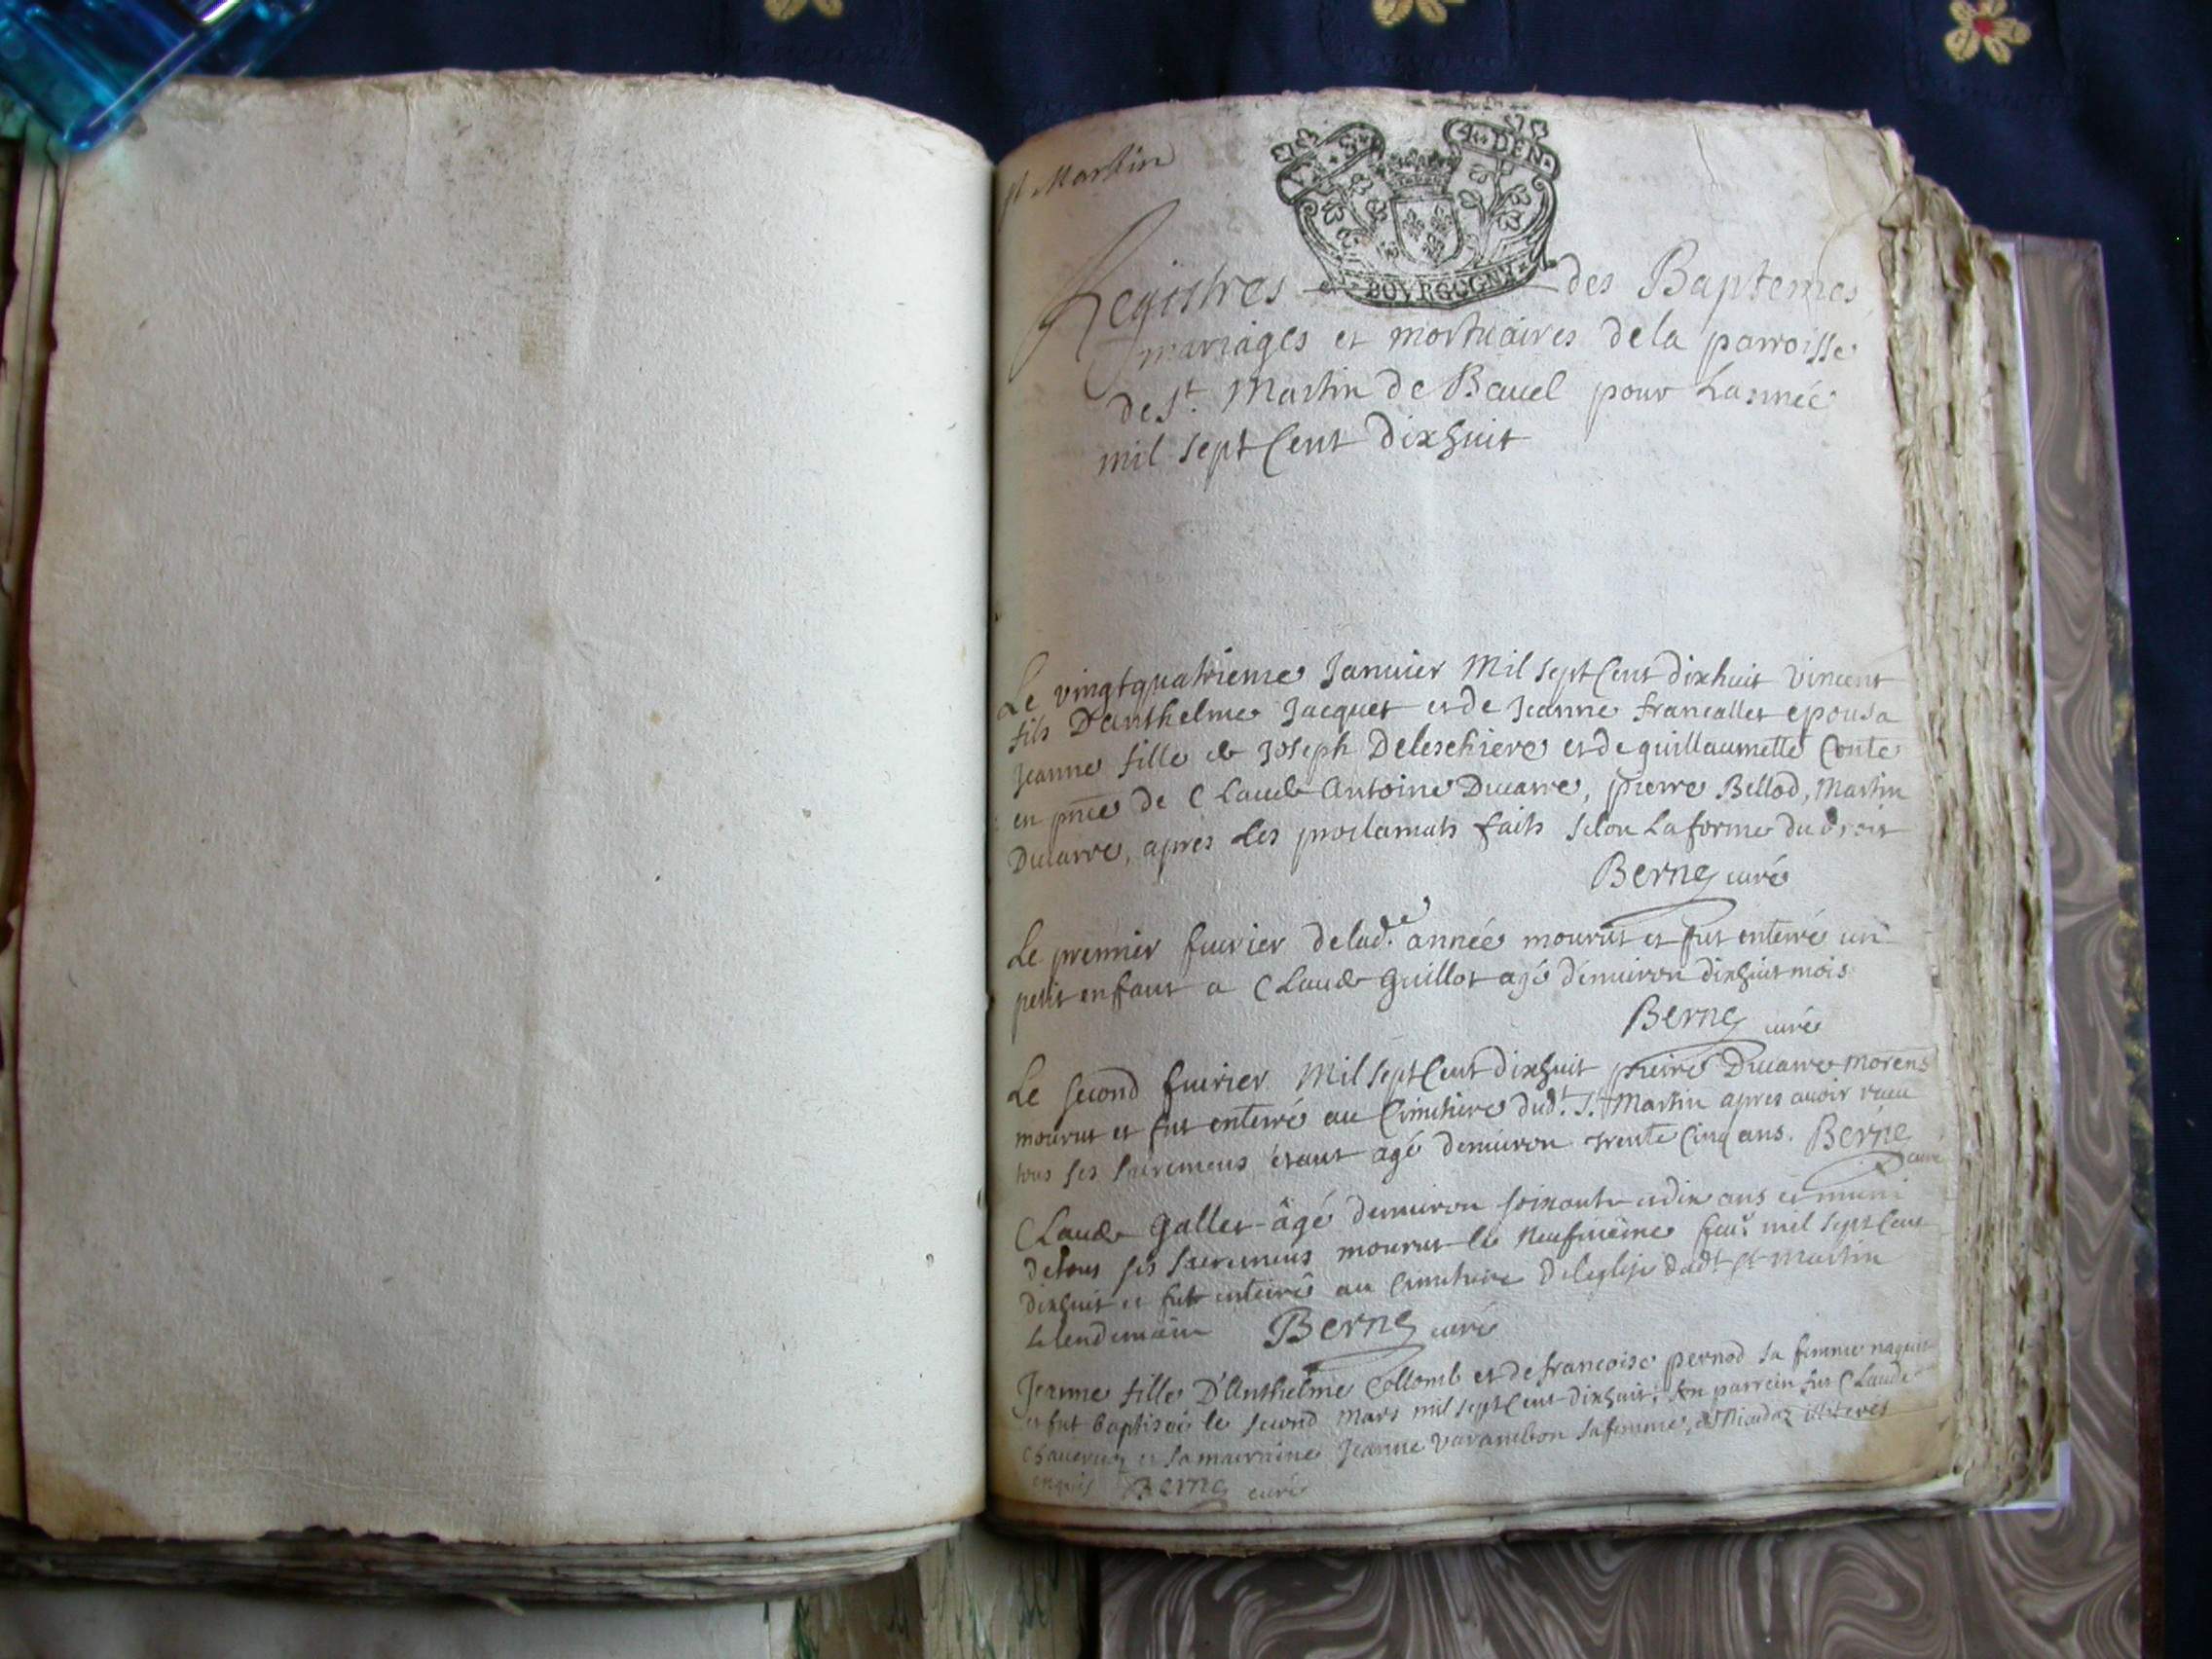 St Martin
A.. DEN.
BOVRGOGNE
Registres des Baptemes
mariages et mortuaires dela parroisse
de St. Martin de Bauel pour Lannée
mil sept Cent dixhuit
Le vingtquatrieme Januier Mil sept Cent dixhuit Vincent
fils D'Anthelme Jacquet et de Jeanne francallet epousa
Jeanne fille de Joseph Deleschiere et de guillaumette Conte
en pnce de Claude Antoine Ducarre, pierre Bellod, Martin
Ducarre, apres les proclamats faits selon la forme du droit
Berne curé
Le premier feurier delade. année mourut et fut enterré un
petit enffant a Claude guillot agé denuiron dixhuit mois
Berne curé
Le second feurier Mil sept Cent dixhuit pierre Ducarre Morens
mourut et fut enterré au Cimitiere dudt. St. Martin apres auoir receu
tous ses sacremens étant agé denuiron trente Cinq ans. Berne
curé
Claude Gallet âgé denuiron soixante et dix ans et muni
de tous ses sacremens mourut le Neufuième feur. mil sept Cent
dixhuit et fut enterré au Cimitiere de leglise dudt. St Martin
le lendemain Berne curé
Jeanne fille D'Anthelme Collomb et de francoise pernod sa femme naquit
et fut baptisée le second Mars mil sept Cent dixhuit; son parrein fut Claude
et sa marraine Jeanne Varambon sa femme, illiteres
enquis Berne curé